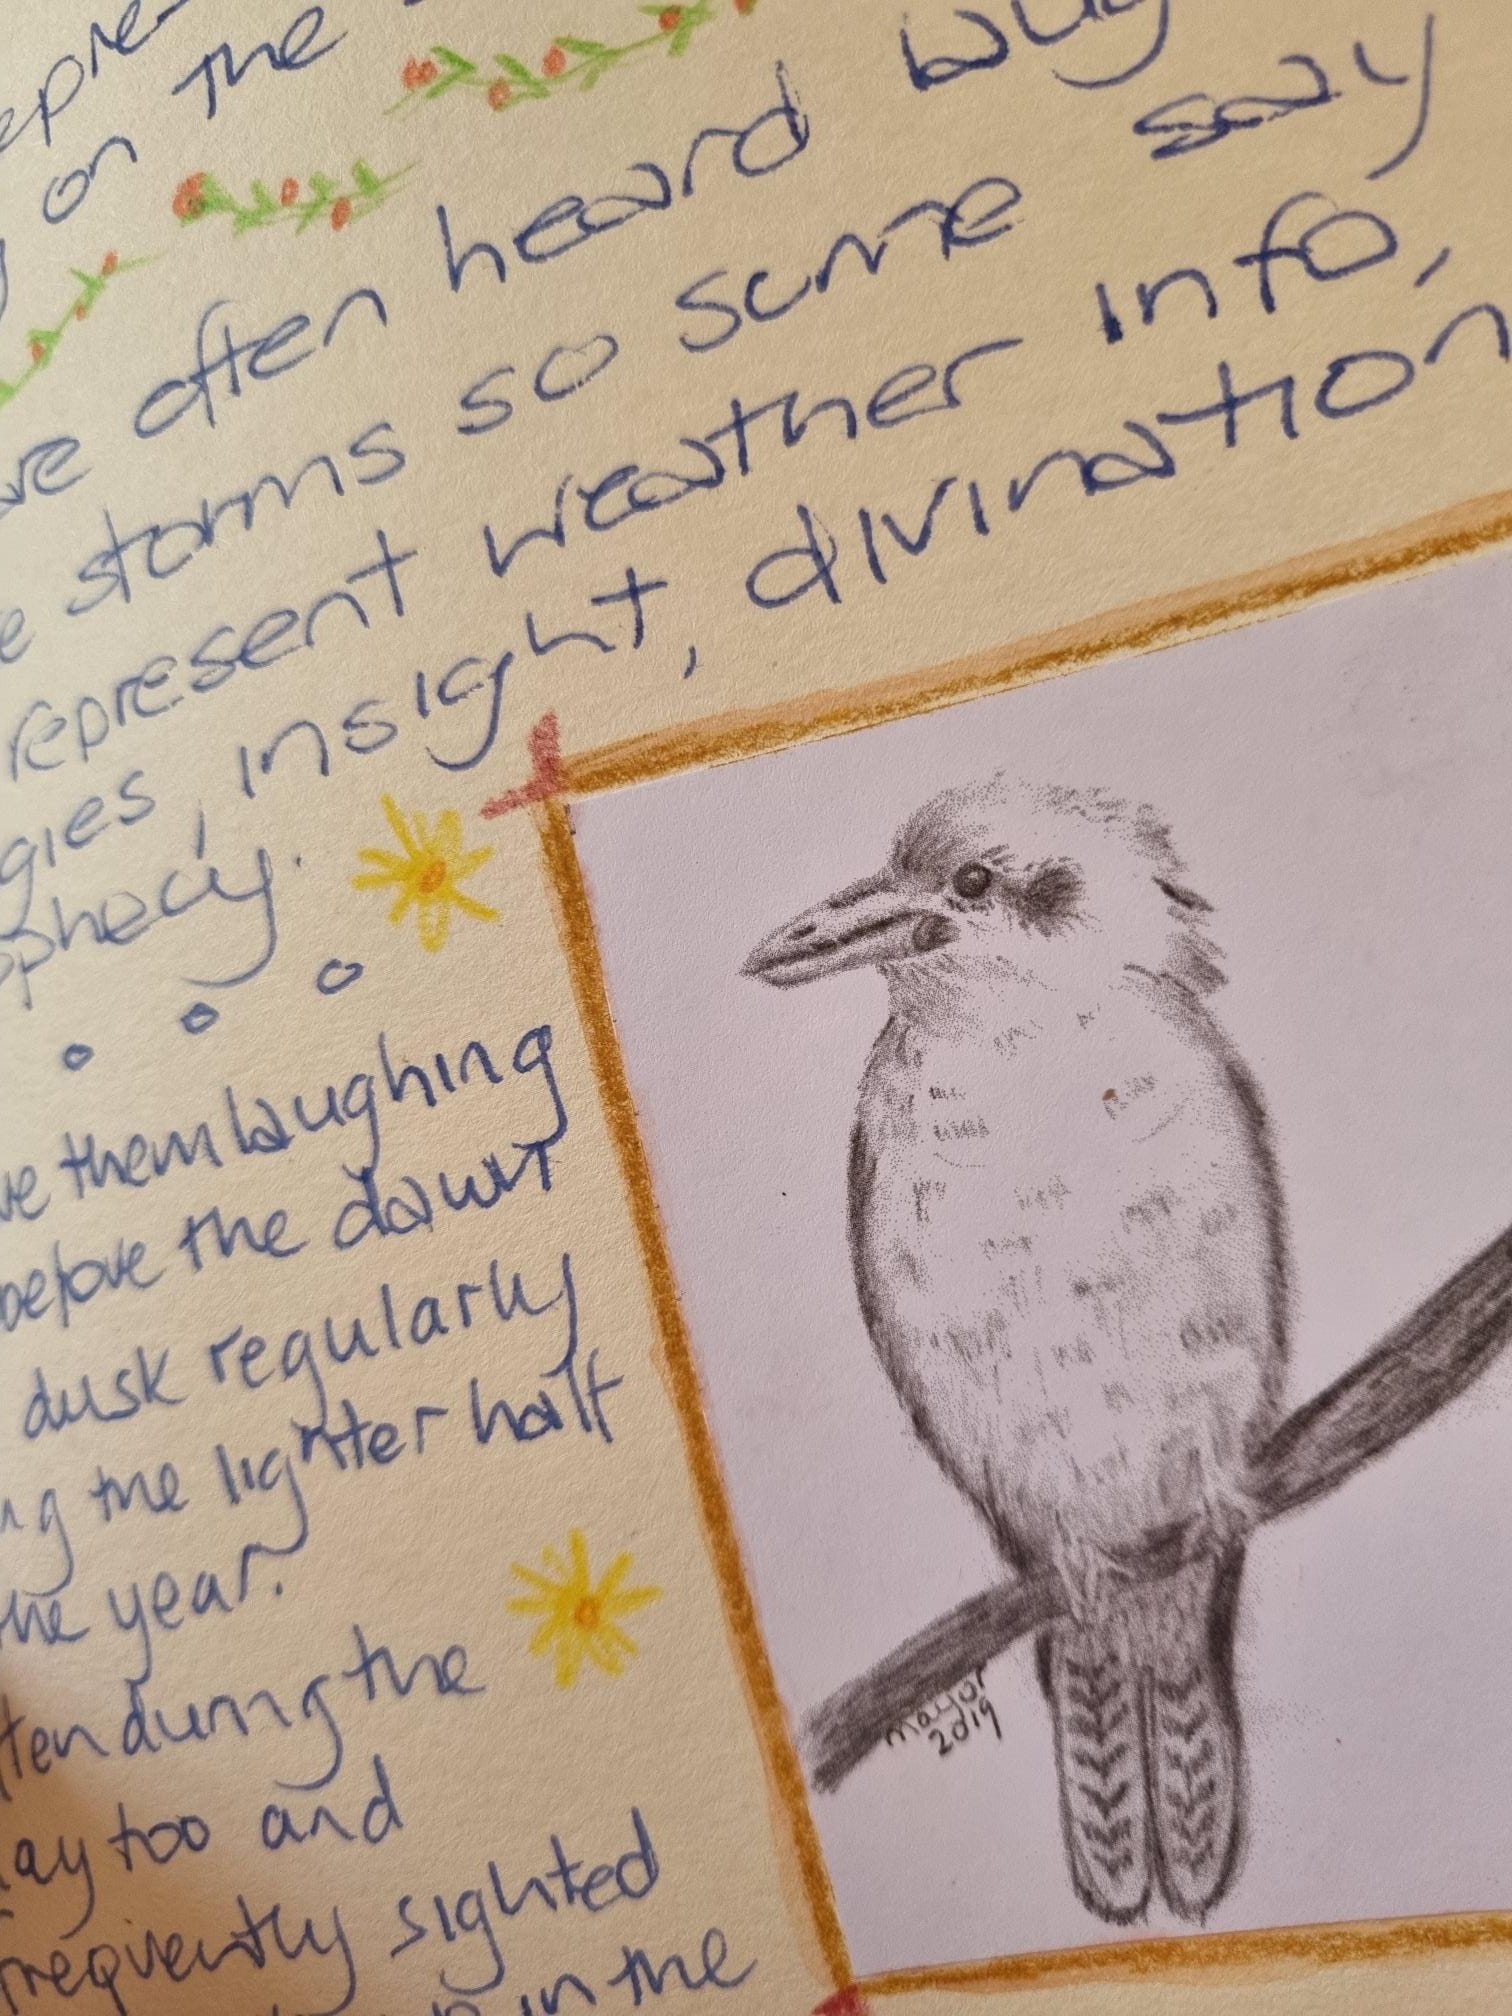 on the
often heard
storms so some say
represent weather info,
insight, divination
them laughing
before the dawn
dusk regularly
the lighter half
the year.
during the
too and
frequently sighted
in the
mayor
2019